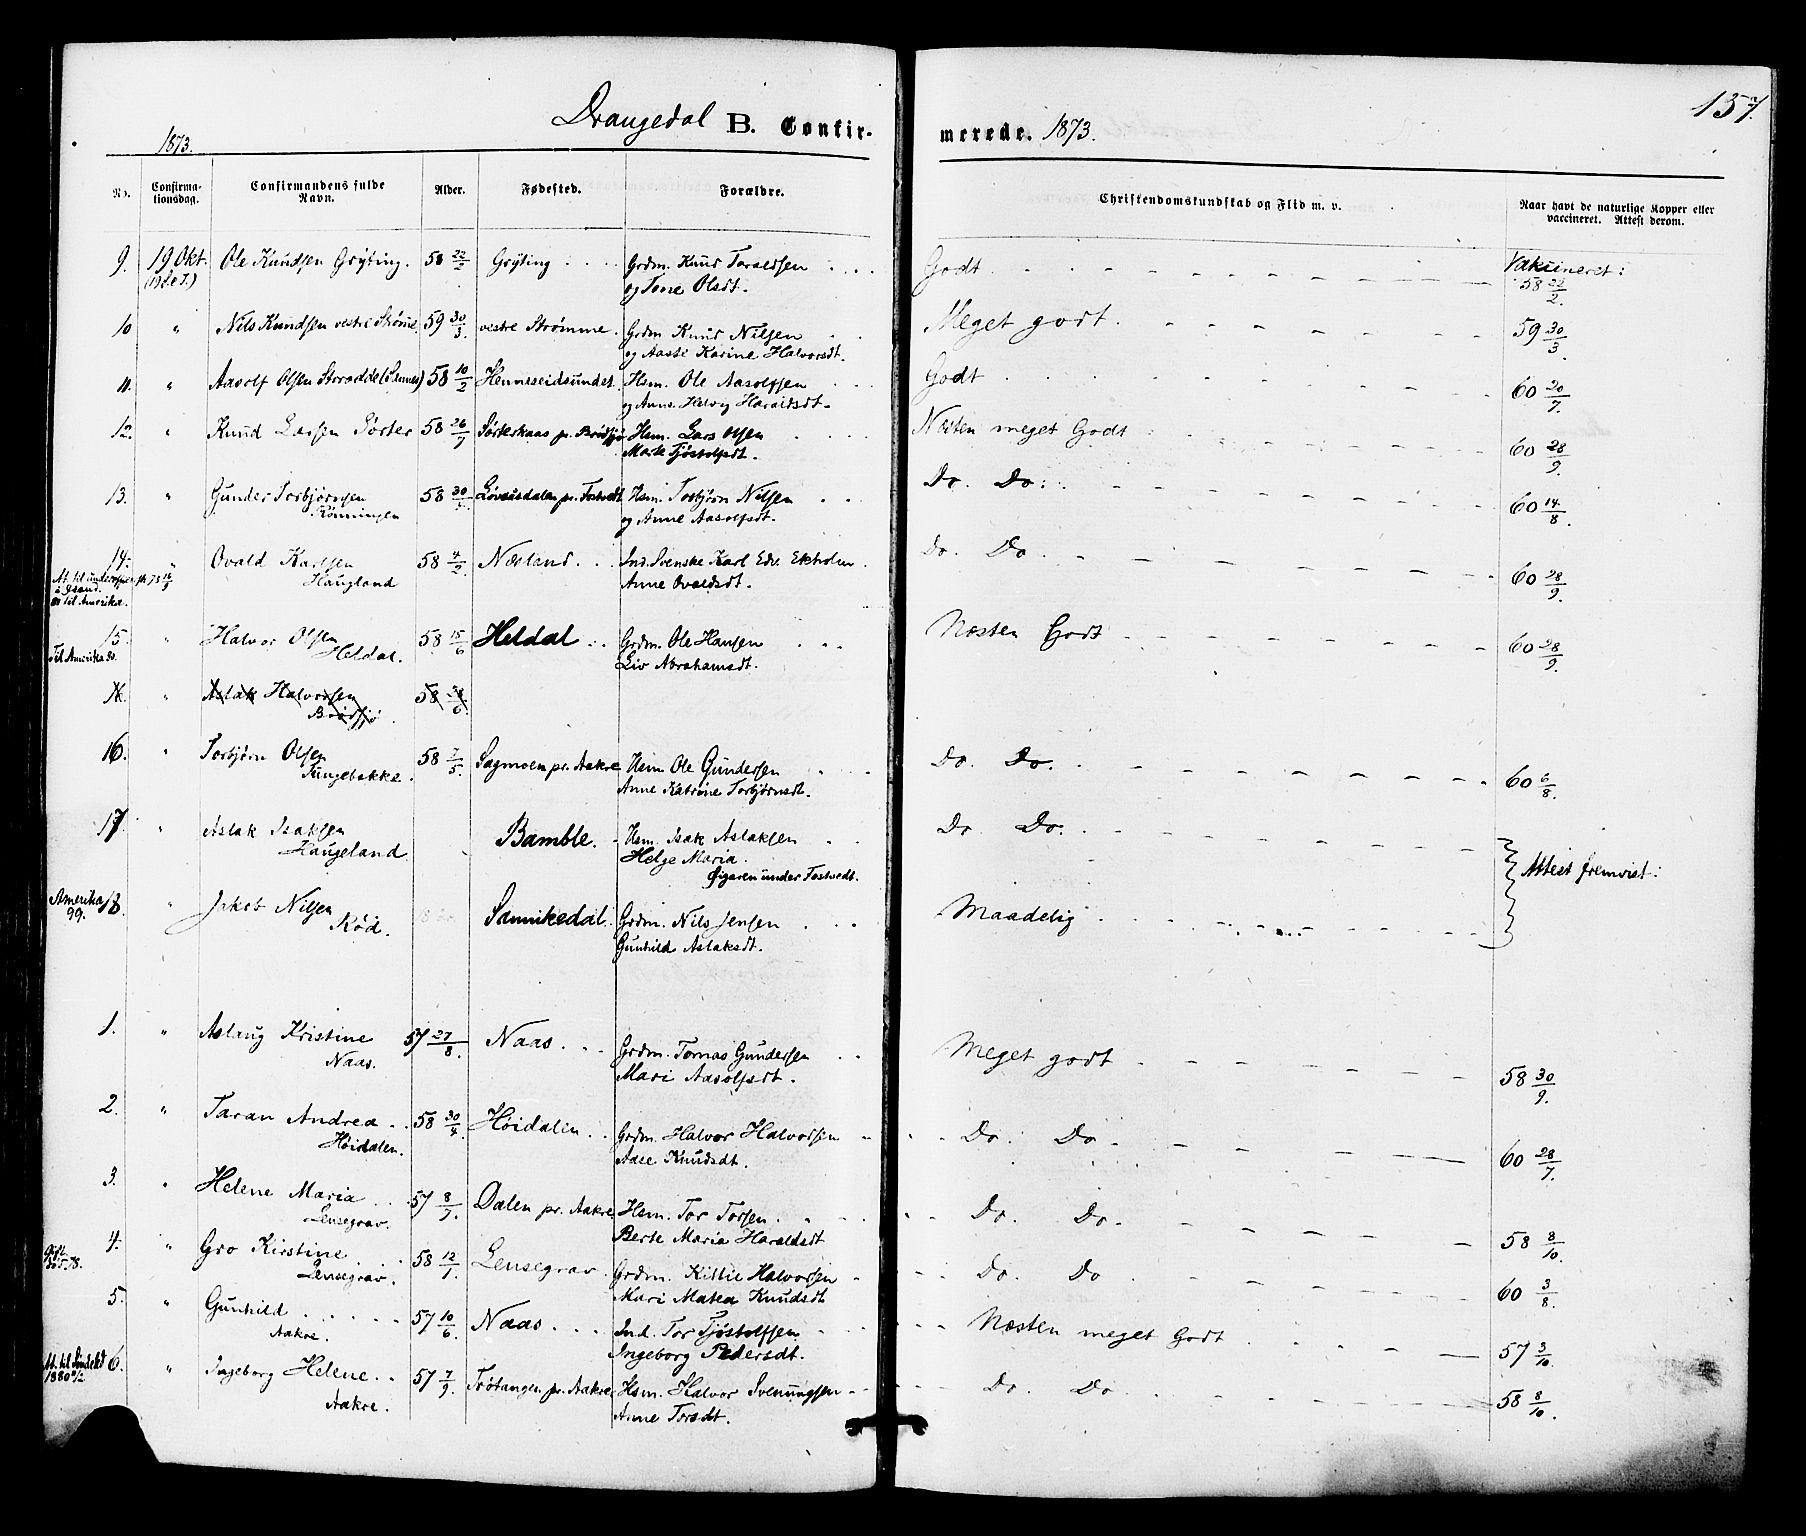 157.
Drangedal B. Confirmerede. 1873.
1873.
No. Confirmationsdag. Confirmandens fulde Navn. Alder. Fødested. Forældre. Christendomskundskab og Flid m. v. Naar havt de naturlige Kopper eller vaccineret. Attest derom.
9. 19 Okt. Ole Knudsen Gryting. 58 22/2 Gryting Grdm. Knud Taraldsen og Tone Olsdt. Godt Vakcineret: 58 22/2.
10 " Nils Knudsen vestre Strømme. 59 30/3. vestre Strømme. Grdm. Knud Nilsen og Aaste Karine Halvorsdt. Meget godt. 59 30/3.
11. " Aasolf Olsen 58 10/2 Henneseidsundet. Hsm. Ole Aasolfsen og Anne Helvig Haraldsdt. Godt 60 20/7.
12. " Knud Larsen Sørter 58 Sørterkaas pr. Brødsjø Hsm. Lars Olsen Marte Tjøstolfsdt. Næsten meget Godt 60 28/9.
13. " Gunder Torbjørnsen Rønningen 58 pr. Tostvedt Hsm. Torbjørn Nilsen og Anne Aasolfsdt. Do. Do. 60 14/8.
14. " Ovald Karlsen Haugland 58 4/2 Næsland Ind. Svenske Karl Edv. Ekholm. Anne Ovaldsdt. Do. Do. 60 28/9.
til Amerika.
15. " Halvor Olsen Heldal. 58 15/6 Heldal Grdm. Ole Hansen Liv Abrahamsdt. Næsten Godt 60 28/9.
Til Amerika 80.
" Aslak Halvorsen Brødsjø. 58
16. " Torbjørn Olsen Tungebakke. 58 7/5. Sagmoen pr. Aakre Hsm Ole Gundersen Anne Katrine Torbjørnsdt. Do. Do. 60 6/8.
17. " Aslak Isaksen Haugeland. Bamble. Hsm. Isak Aslaksen Helge Maria. Øigaren under Tostvedt. Do. Do. Attest fremvist:
18. " Jakob Nilsen Rød. Sannikedal. Grdm. Nils Jensen Gunhild Aslaksdt. Maadelig
Amerika 99.
1. " Aslaug Kristine Naas. 57 27/8. Naas. Grdm. Tomas Gundersen Mari Aasolfsdt. Meget godt 58 30/9.
2. " Taran Andrea Høidalen. 58 30/4. Høidalen Grdm. Halvor Halvorsen Aase Knudsdt. Do. Do. 60 28/7.
3. " Helene Maria Lensegrav. 57 Dalen pr. Aakre. Hsm. Tor Torsen. Berte Maria Haraldsdt Do. Do. 58 8/10.
4. " Gro Kirstine Lensegrav. 58 12/1. Lensegrav. Grdm. Kittil Halvorsen Mari Matea Knudsdt Do. Do 60 3/8.
5. " Gunhild Aakre. 57 10/6. Naas Ind. Tor Tjøstolfsen Ingeborg Pedersdt. Næsten meget Godt 57 3/10.
6. " Ingeborg Helene Aakre. 57 7/9. Trøtangen pr. Aakre Hsm. Halvor Svenungsen Anne Torsdt. Do. Do 58 8/10.